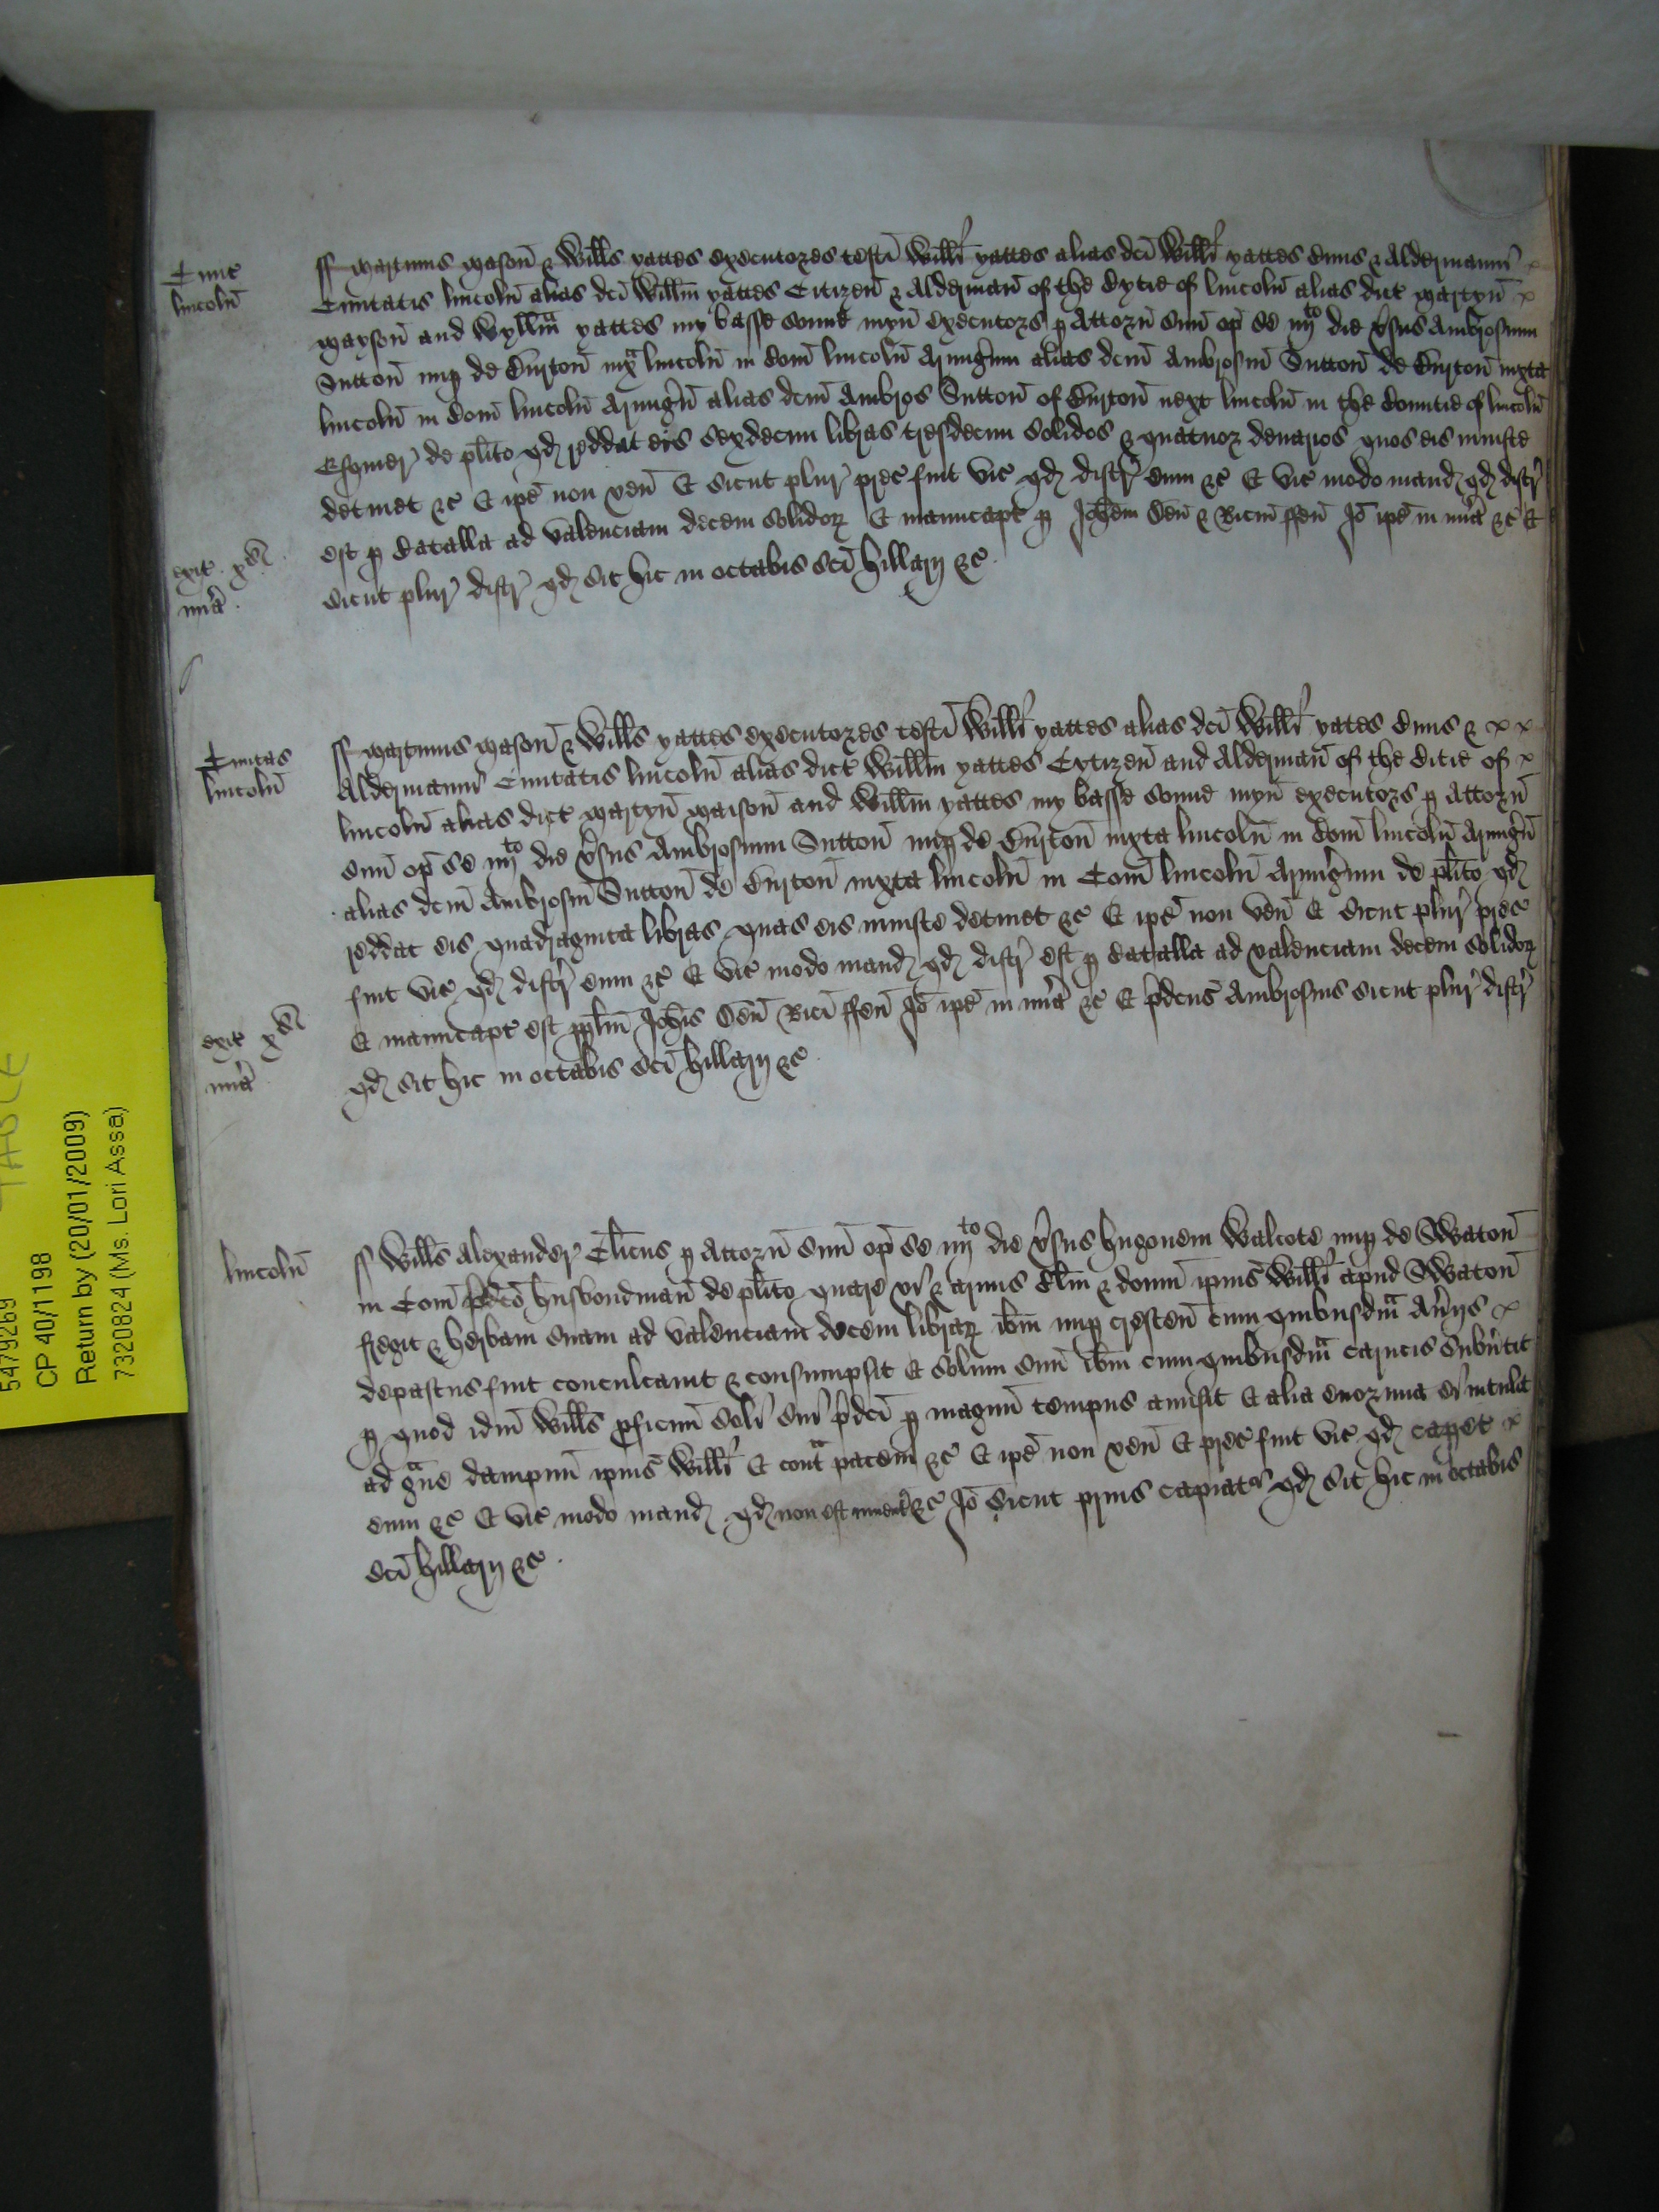 Civit
lincoln̄
ss Martinus Mason̄ & Wills yattes executores testi Willi yattes alias dci Willi yattes Civis & Aldermanni
Civitatis lincoln̄ alias dci Willm yattes Citizen̄ & Alderman̄ of the Cytie of lincoln̄ alias dict Martyn̄
Mayson̄ and Wyllm̄ yattes my basse sonne myn̄ executors p Attorn̄ suū op̄ se iiijto die v̓sus Ambrosium
Sutton̄ nup de Burton̄ iuxa lincoln̄ in Com̄ lincoln̄ Armig̓um alias dcm̄ Ambrosiū Sutton̄ de Burton̄ iuxta
lincoln̄ in Com̄ lincoln̄ Armig̓u alias dcm̄ Ambros Sutton̄ of Burton̄ next lincoln̄ in the Countie of lincoln̄
Esquier de plito qd reddat eis sexdecim libras tresdecim solidos & quatuor denarios quos eis iniuste
detinet &c Et ip̄e non ven̄ Et sicut plur̓ prec̄ fuit vic̄ qd distr̓ eum &c Et vic̄ modo mand qd distr̓
est p catalla ad valenciam decem solidor̄ Et manucapt p Joh̄em Den̄ & Ricm̄ ffen̄ Jō ip̄e in mīa &c Et
sicut plur̓ distr̓ qd sit hic in octabis sci hillarij &c
exit xs
mīa
Civitas
lincoln̄
ss Martinus Mason̄ & Wills yattes executores testi Willi yattes alias dci Willi yates Civis &
Aldermanni Civitatis lincoln̄ alias dict Willm̄ yattes Cytizen̄ and Alderman̄ of the Citie of
lincoln̄ alias dict Martyn̄ Maison̄ and Willm̄ yattes my basse sonne myn̄ executors p Attorn̄
suū op̄ se iiijto die v̓sus Ambrosium Sutton̄ nup de Burton̄ iuxta lincoln̄ in Com̄ lincoln̄ Armig̓u
alias dcm̄ Ambrosiū Sutton̄ de Burton̄ iuxta lincoln̄ in Com̄ lincoln̄ Armig̓um de plito qd
reddat eis quadraginta libras quas eis iniuste detinet &c Et ip̄e non ven̄ Et sicut plur̓ prec̄
fuit vic̄ qd distr̓ eum &c Et vic̄ modo mand qd distr̓ est p catalla ad valenciam decem solidor̄
Et manucapt est Joh̄is Den̄ Rici ffen̄ Jō ip̄e in mīa &c Et p̓dcūs Ambrosius sicut plur̓ distr̓
qd sit hic in octabis sci hillarij &c
exit xs
mīa
lincoln̄
ss Wills Alexander Cl̄icus p Attorn̄ suū op̄ se iiijto die v̓sus hugonem Walcote nup de Swaton̄
in Com̄ p̄dc̄o husbondman̄ de plito quare vi & armis cl̄m & domū ipius Willi apud Swaton̄
fregit & herbam suam ad valenciam decem librar̄ ibm̄ nup crescen̄ cum quibusdm̄ Au̓iis
depastus fuit conculcavit & consumpsit Et solum suū ibm̄ cum quibusdm̄ carucis subv̓tit
p quod idm̄ Wills p̱ficuū soli sui p̓dci p magnū tempus amisit Et alia enormia ei intulit
ad gāue dampnū ipius Willi Et conta pacem &c Et ip̄e non ven̄ Et prec̄ fuit vic̄ qd capet
eum &c Et vic̄ modo mand qd non est invent &c Jō Sicut prius capiatr qd sit hic in octabis
sci hillarij &c
5479269
CP 40/1198
Return by (20/01/2009)
7320824 (Ms. Lori Assa)